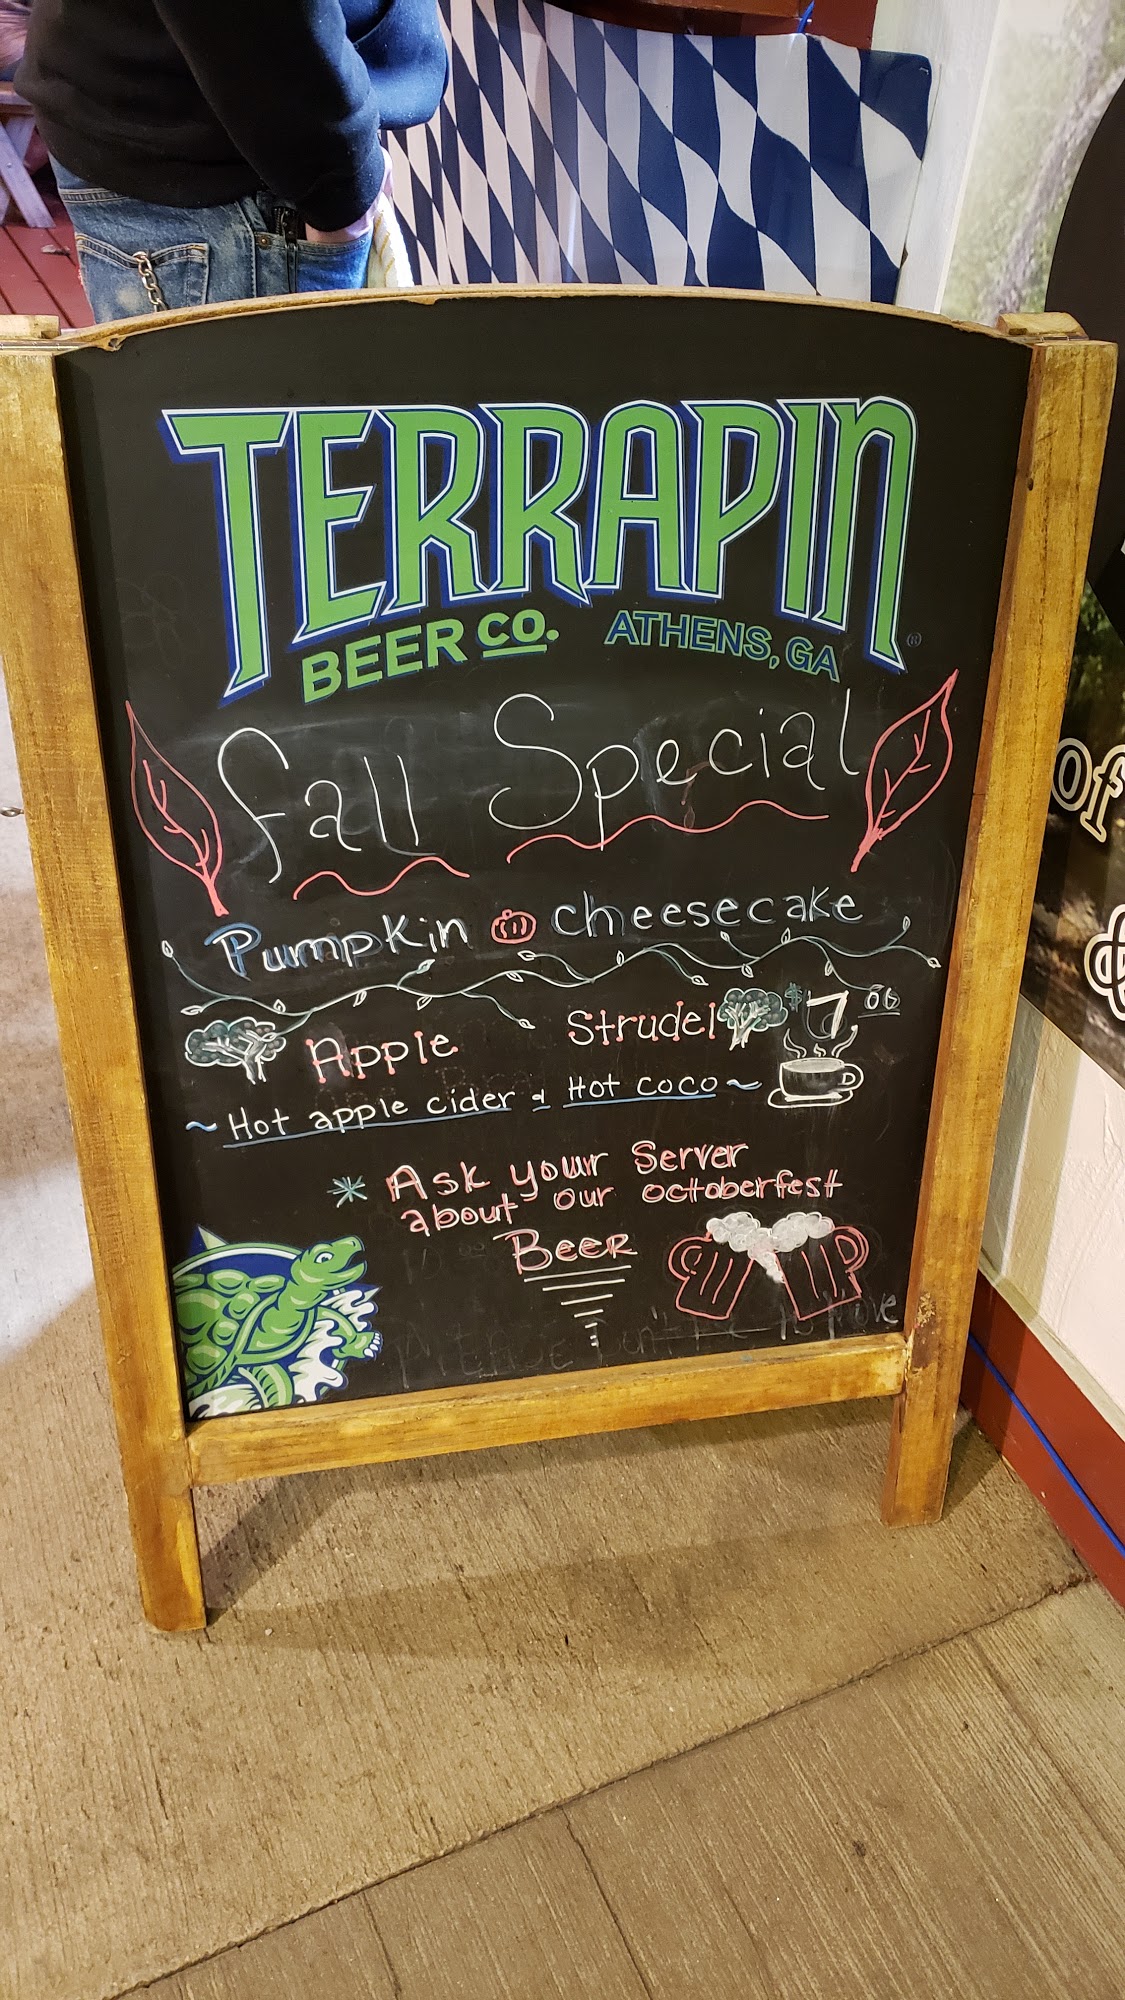 TERRAPIN®
BEER CO. ATHENS, GA
Fall Special
Pumpkin cheesecake
Apple Strudel $7.00
~ Hot apple cider & Hot coco ~
* Ask your Server
about our octoberfest
Beer
Please Don't to Move
of